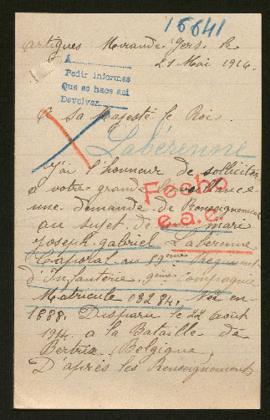 15641
Artigues Mirande Gers le
21 Mai 1916.
A
Pedir informes
Que se hace así
Devolver
A sa Majesté le Roi.
Labérenne
J'ai l'honneur de solliciter
a votre grand
une demande de Renseignement
au sujet de mari
Joseph gabriel Labérenne
Caporal au Regiment
d'Infanterie 9eme Compagnie
Matricule 03284. Né en
1888. Disparu le 22 août
1914 a la Bataille de
Bertrix. Belgique
D'après les Renseignements
Fecha
e.a.e.